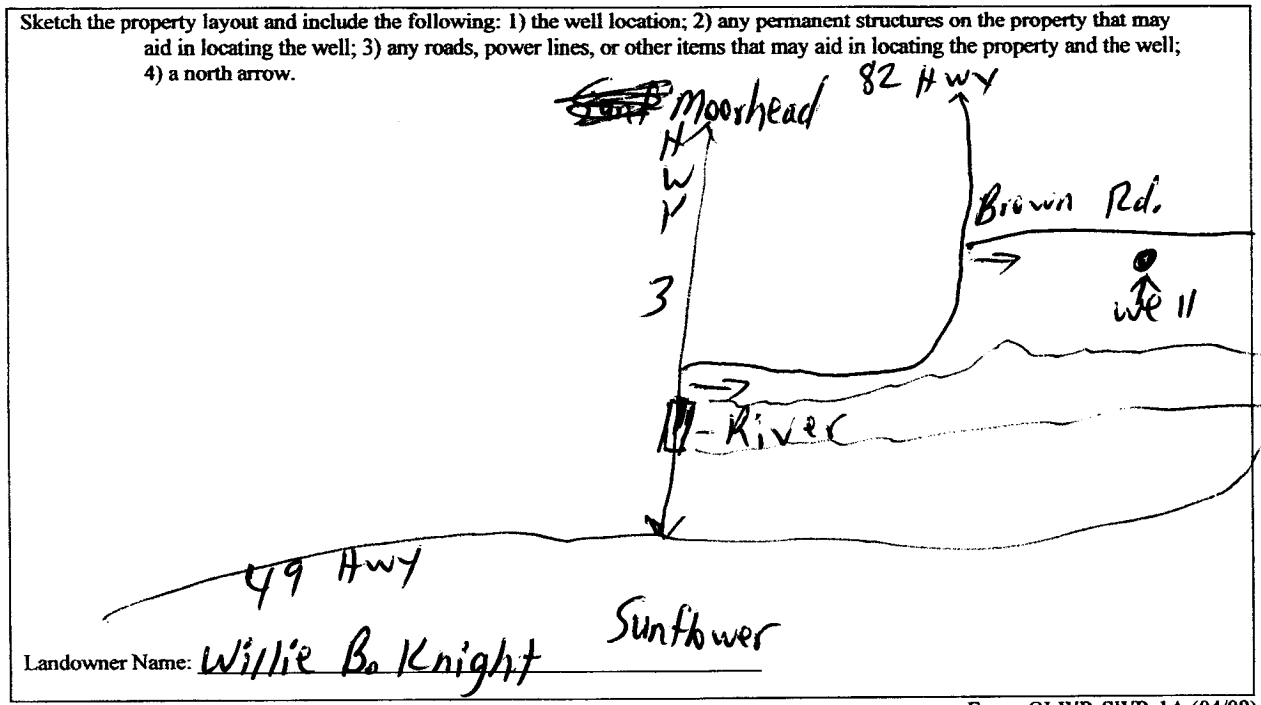 Sketch the property layout and include the following: 1) the well location; 2) any permanent structures on the property that may
aid in locating the well; 3) any roads, power lines, or other items that may aid in locating the property and the well;
4) a north arrow.
82 Hwy
Moorhead
HWY
3
Brown Rd.
well
- River
49 Hwy
Sunflower
Landowner Name: Willie B. Knight